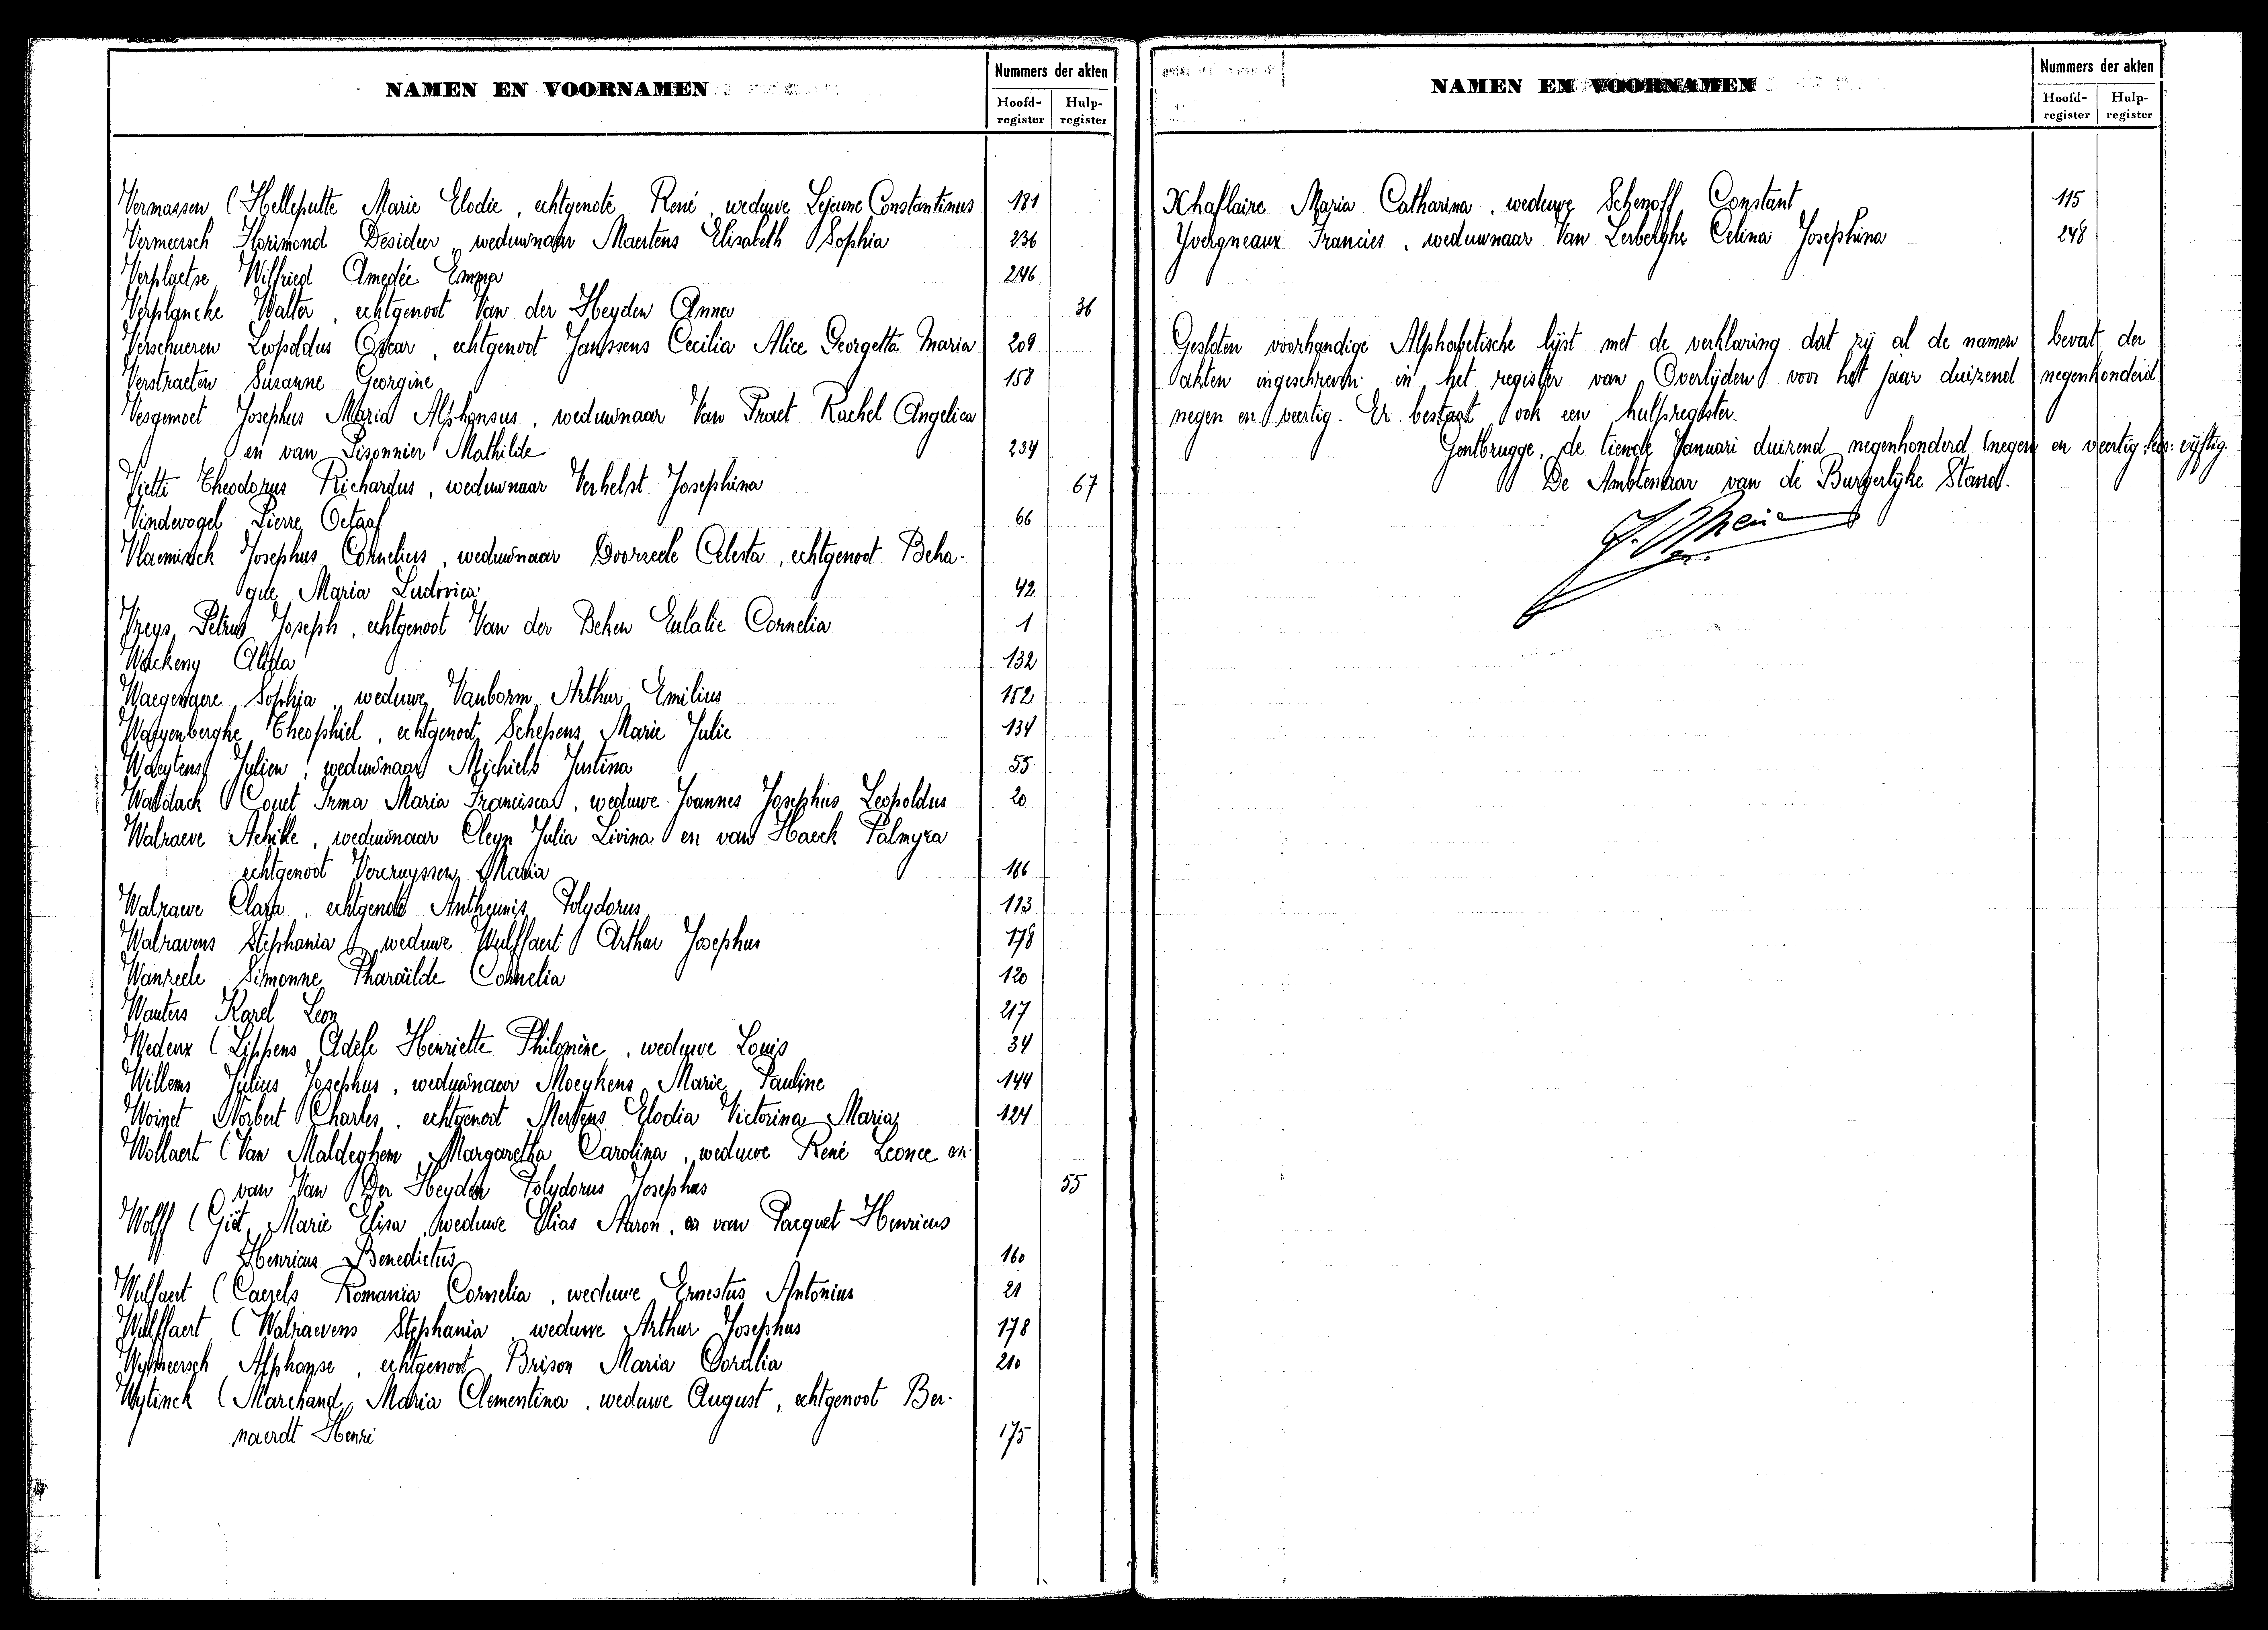 NAMEN EN VOORNAMEN
Nummers der akten
Hoofd-register
Hulp-register
Vermassen (Helleputte Marie Elodie, echtgenote René, weduwe Lejeune Constantinus 181
Vermeersch Florimond Desideer, weduwnaar Maertens Elisabeth Sophia 236
Verplaetse Wilfried Amedée Emma 246
Verplancke Walter, echtgenoot Van der Heyden Anna 36
Verschueren Leopoldus Oscar, echtgenoot Janssens Cecilia Alice Georgetta Maria 209
Verstraeten Susanne Georgine 158
Vesgemoet Josephus Maria Alphonsus, weduwnaar Van Praet Rachel Angelica
en van Pisonnier Mathilde 234
Vietti Theodorus Richardus, weduwnaar Verhelst Josephina 67
Vindevogel Pierre Octaaf 66
Vlaeminck Josephus Cornelius, weduwnaar Doorzele Celesta, echtgenoot Beha-
gue Maria Ludovica 42
Vreys Petrus Joseph, echtgenoot Van der Beken Eulalie Cornelia 1
Wackeny Alida 132
Waegenaere Sophia, weduwe Vanborm Arthur Emilius 152
Waeyenberghe Theophiel, echtgenoot Schepens Marie Julie 134
Waeytens Julien, weduwnaar Michiels Justina 55
Waldack (Couet Irma Maria Francisca, weduwe Joannes Josephus Leopoldus 20
Walraeve Achille, weduwnaar Cleyn Julia Livina en van Haeck Palmyra
echtgenoot Vercruyssen Maria 166
Walraeve Clara, echtgenote Antheunis Polydorus 113
Walravens Stephania, weduwe Wulffaert Arthur Josephus 178
Wanzeele Simonne Pharaïlde Cornelia 120
Wauters Karel Leon 217
Wedeux (Lippens Adèle Henriette Philomène, weduwe Louis 34
Willems Julius Josephus, weduwnaar Moeykens Marie Pauline 144
Woinet Norbert Charles, echtgenoot Mertens Elodia Victorina Maria 124
Wollaert (Van Maldeghem Margaretha Carolina, weduwe René Leonce en
van Van Der Heyden Polydorus Josephus 55
Wolff (Giët Marie Elisa, weduwe Elias Aaron, en van Pacquet Henricus
Henricus Benedictus 160
Wulfaert (Caerels Romania Cornelia, weduwe Ernestus Antonius 21
Wulffaert (Walraevens Stephania, weduwe Arthur Josephus 178
Wymeersch Alphonse, echtgenoot Brison Maria Cordlia 210
Wytinck (Marchand Maria Clementina, weduwe August, echtgenoot Ber-
naerdt Henri 175
NAMEN EN VOORNAMEN
Nummers der akten
Hoofd-register
Hulp-register
Xhaflaire Maria Catharina, weduwe Schenoff Constant 115
Yvergneaux Francies, weduwnaar Van Lerberghe Celina Josephina 248
Gesloten voorhandige Alphabetische lijst met de verklaring dat zij al de namen bevat der
akten ingeschreven in het register van Overlijden voor het jaar duizend negenhonderd
negen en veertig. Er bestaat ook een hulpregister.
Gentbrugge, de tiende Januari duizend negenhonderd (negen en veertig lees: vijftig
De Ambtenaar van de Burgerlijke Stand.